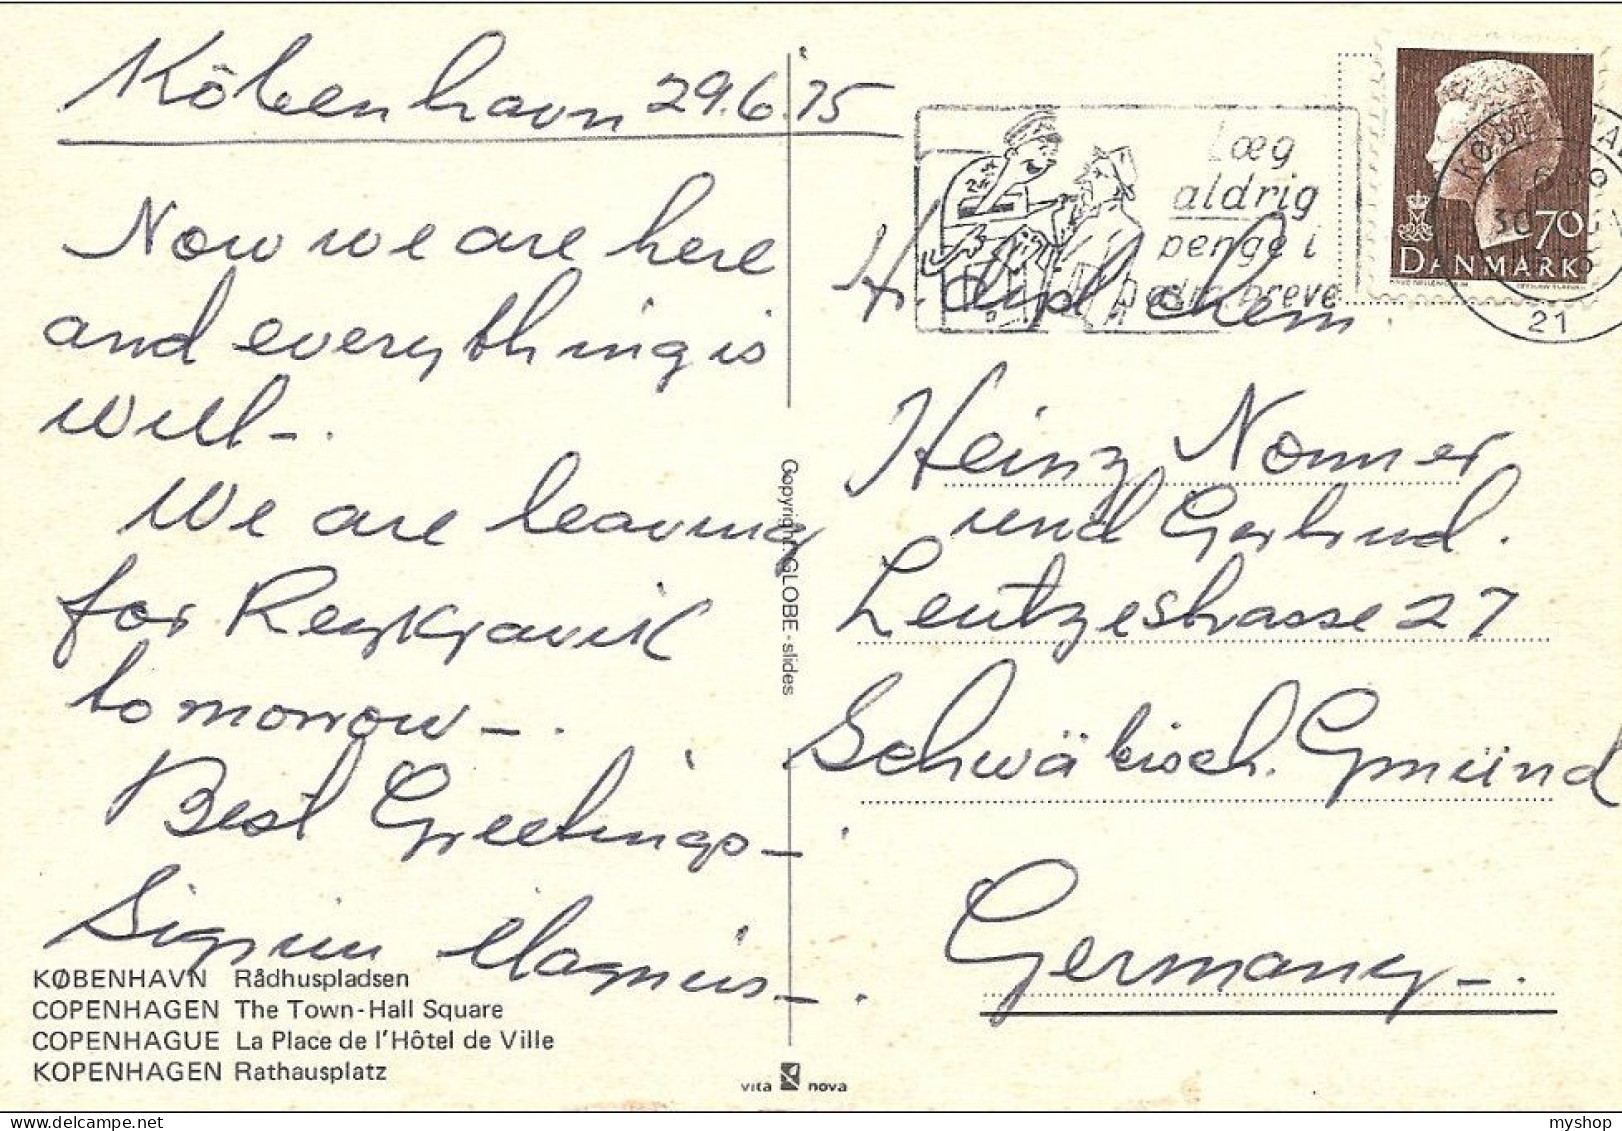 Köbenhavn 29.6.75
Now we are here
and everything is
well -.
We are leaving
for Reykjavik
tomorrow -.
Best Greetings -
Sigrún Magnús -.
KØBENHAVN Rådhuspladsen
COPENHAGEN The Town-Hall Square
COPENHAGUE La Place de l'Hôtel de Ville
KOPENHAGEN Rathausplatz
Copyright: GLOBE - slides
vita nova
Læg
aldrig
penge i
breve
70
DANMARK
21
Hr. dipl chem.
Heinz Nonner
und Gertrud.
Leutzestrasse 27
Schwäbisch. Gmünd
Germany -.
myshop